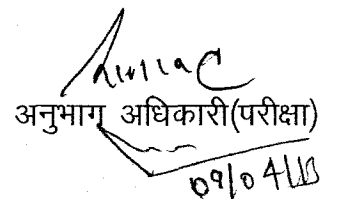 अनुभाग अधिकारी(परीक्षा)
09/04/13